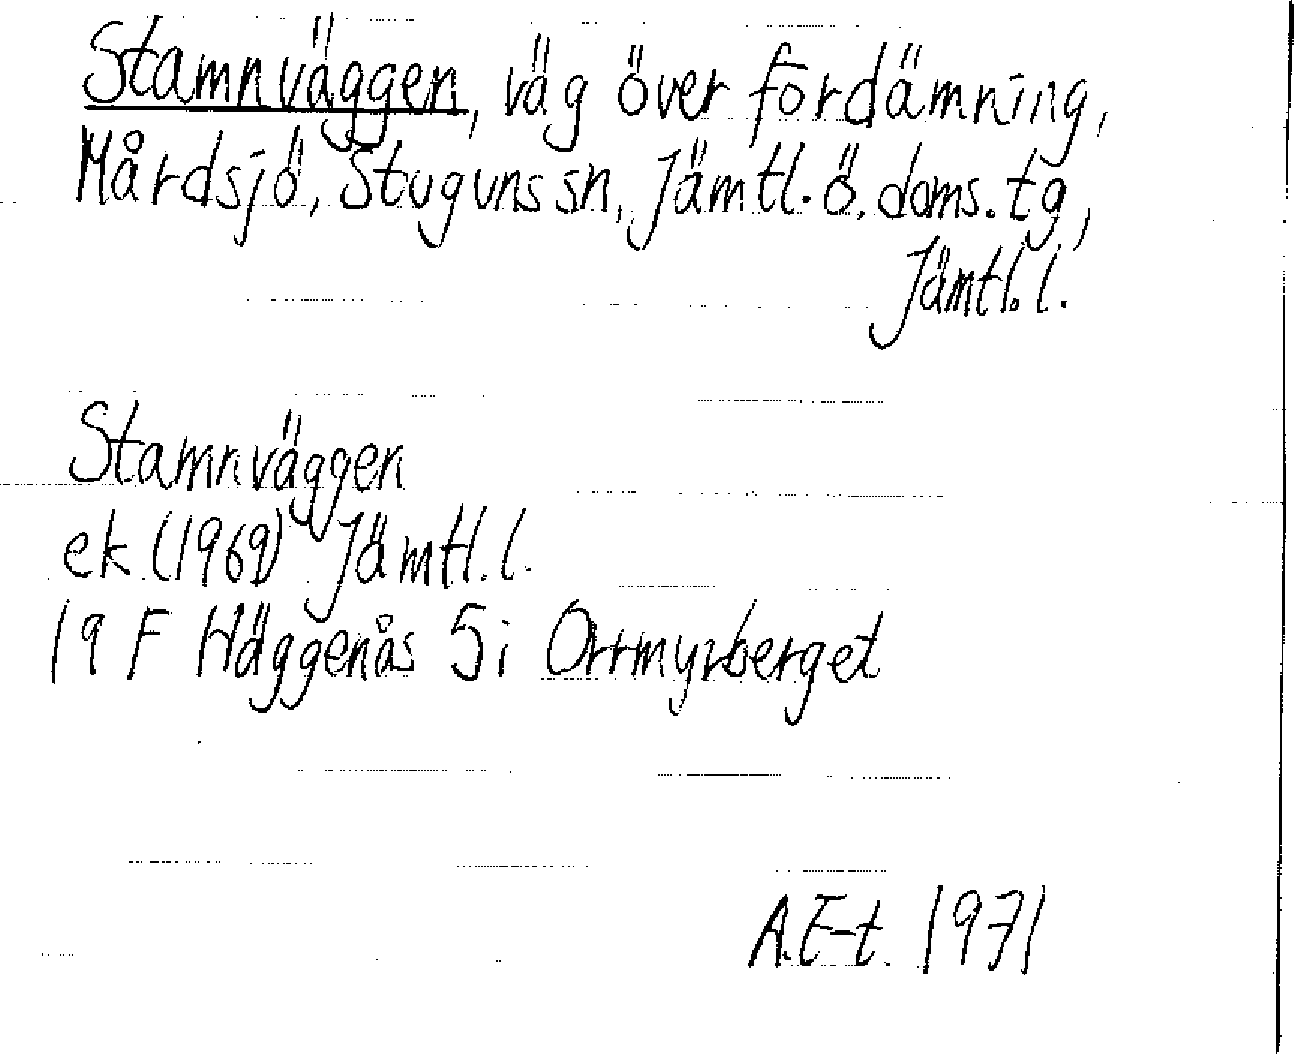 Stamnväggen, väg över fördämning,
Mårdsjö, Stuguns sn, Jämtl. ö. doms. tg,
Jämtl. l.
Stamnväggen
ek (1969) Jämtl. l.
19 F Häggenås 5 i Orrmyrberget
A.E-t. 1971